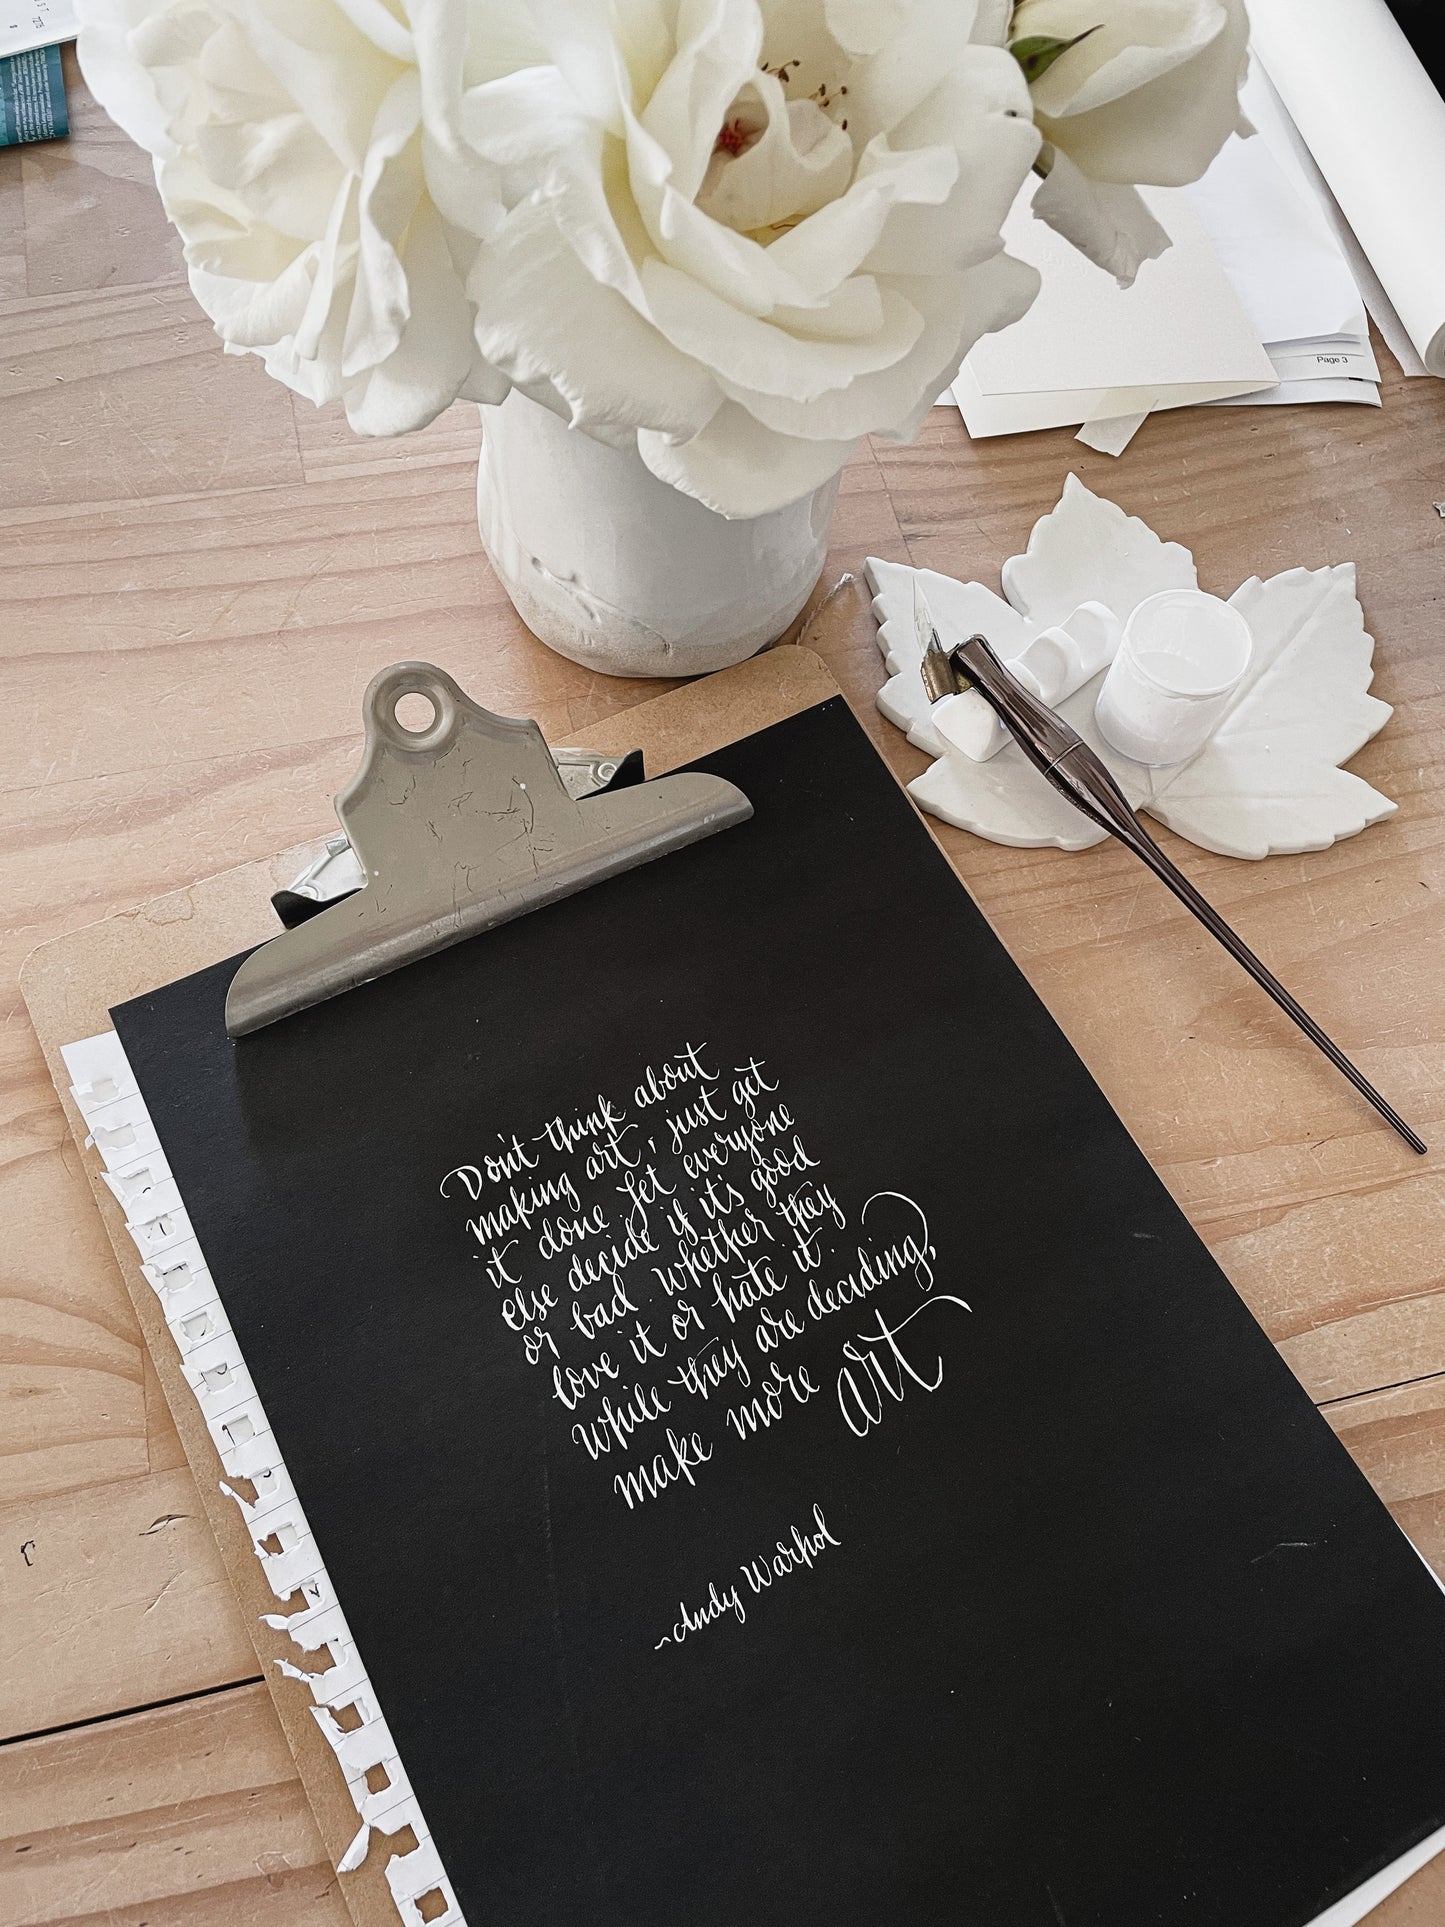 Page 3
Don't think about
making art, just get
it done. Let everyone
else decide if it's good
or bad. whether they
love it or hate it.
While they are deciding,
make more art
~Andy Warhol